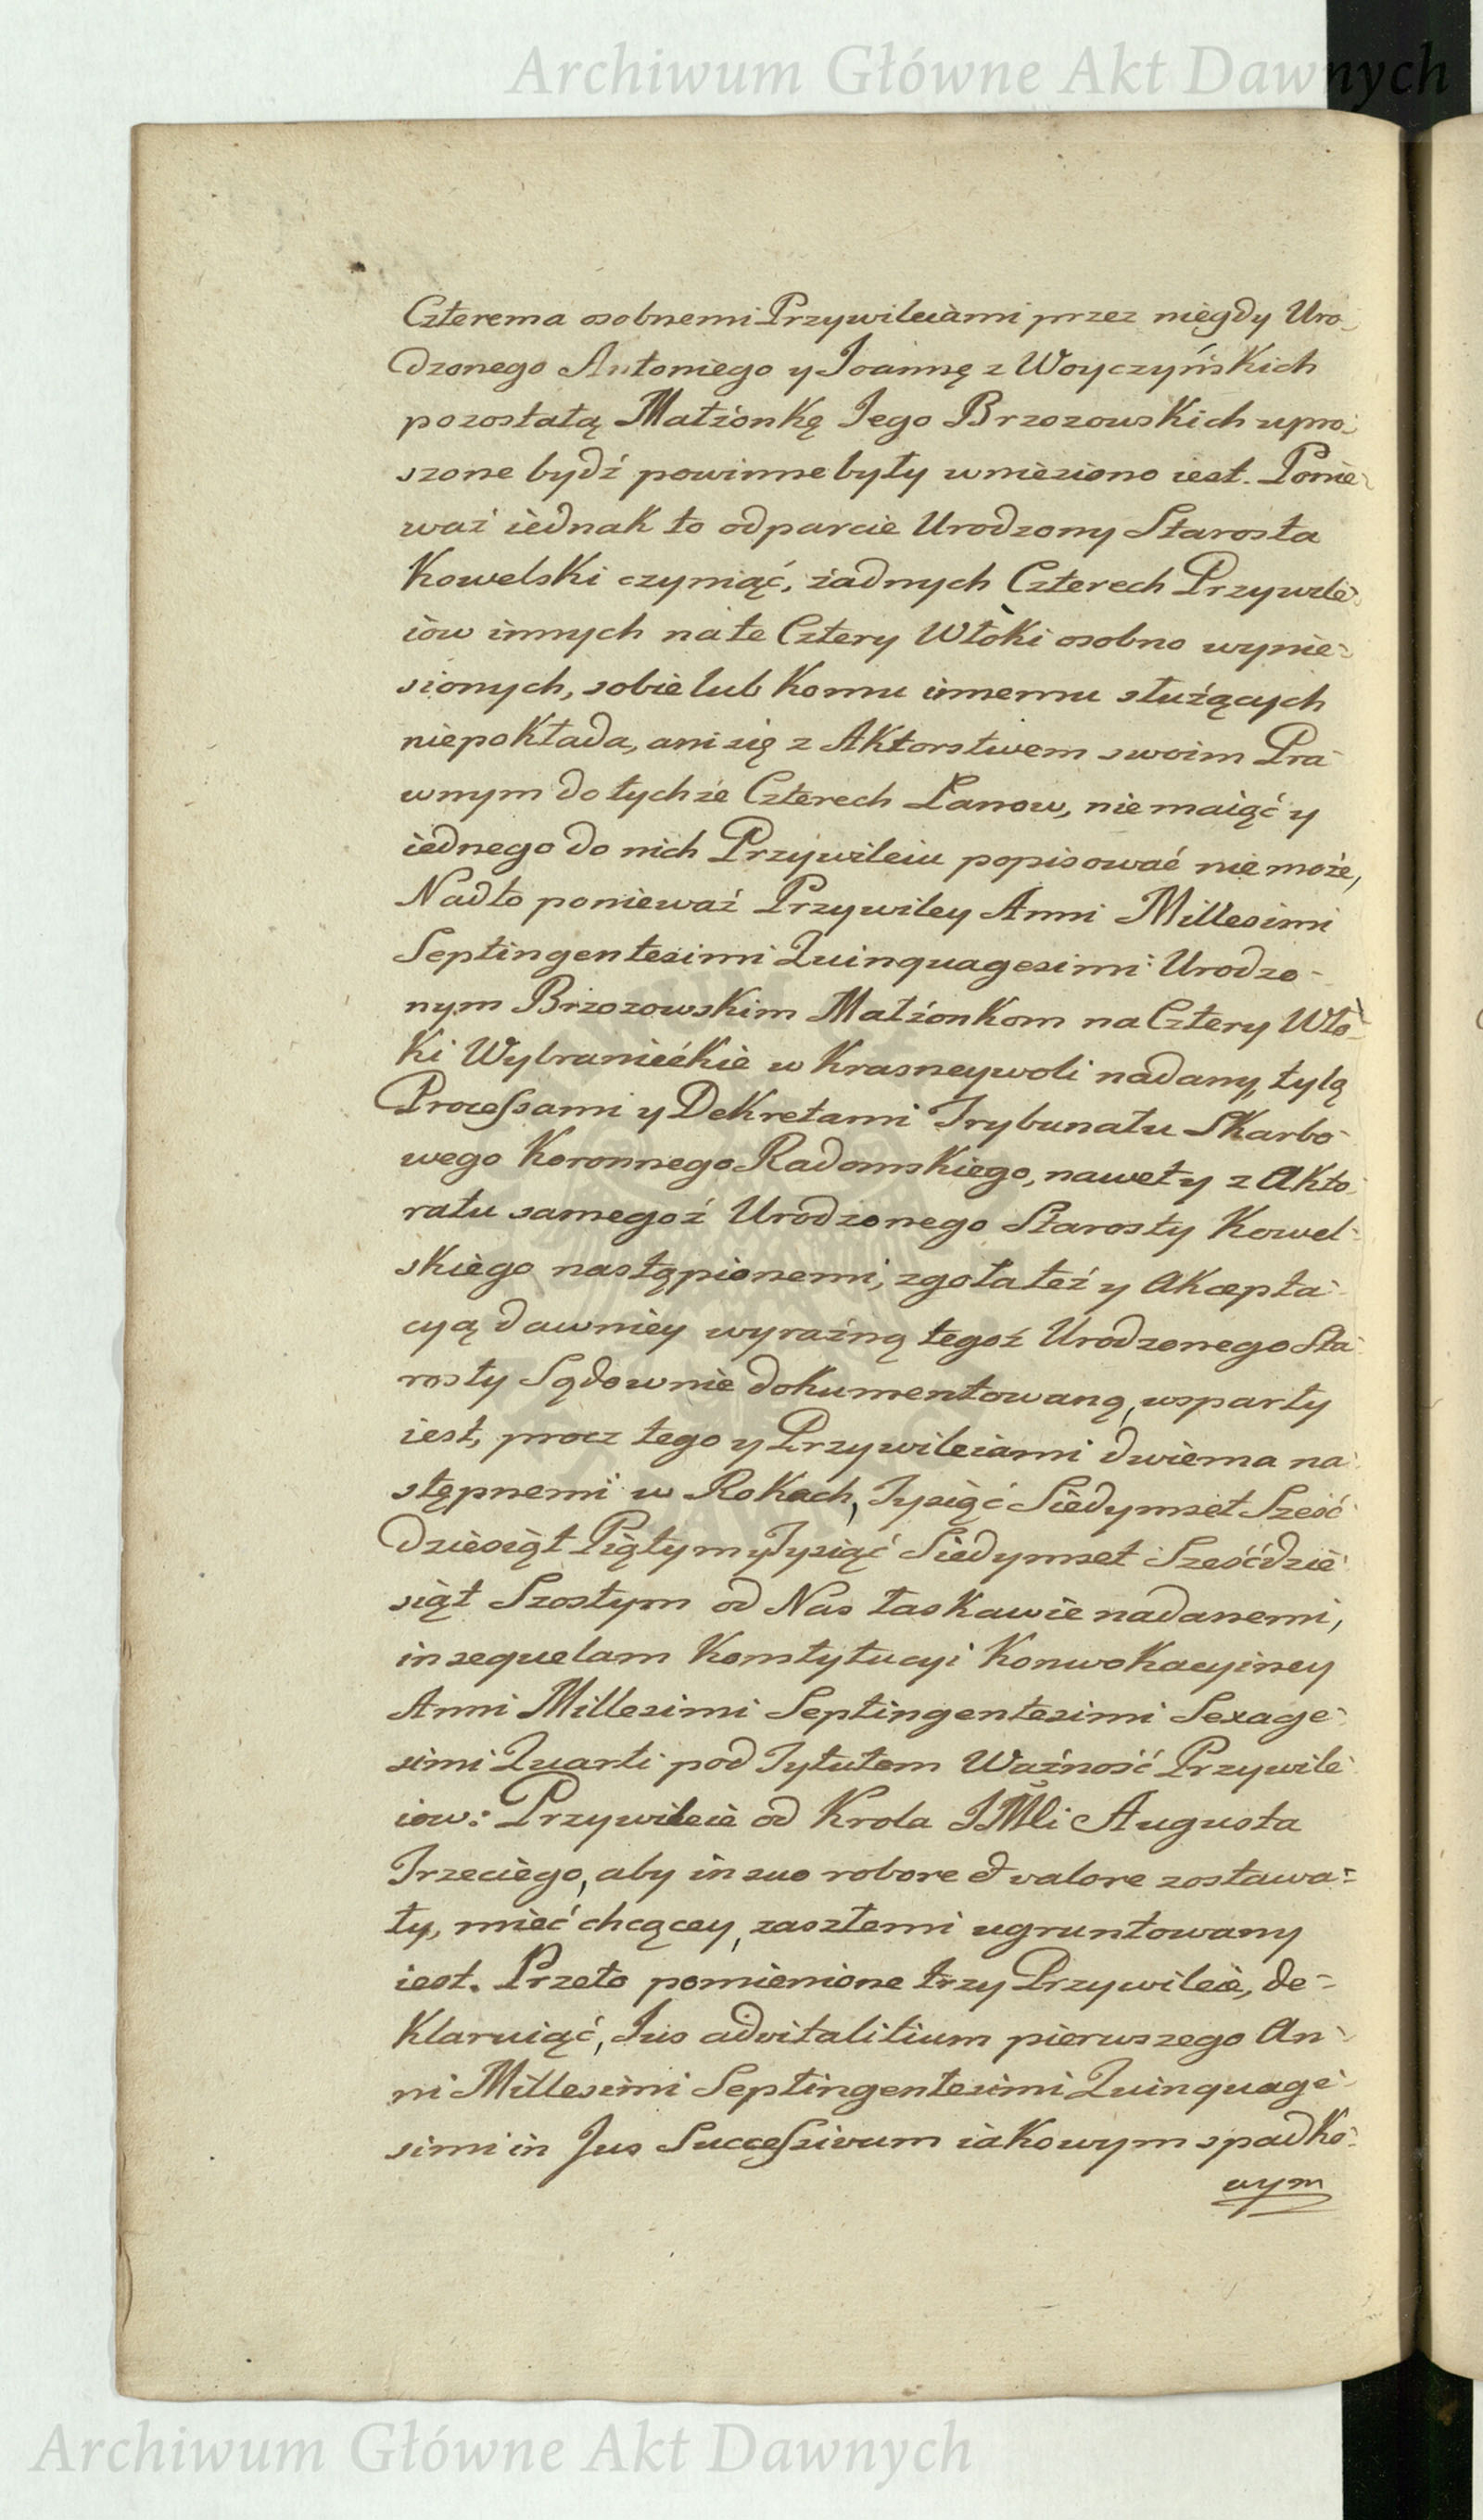 Archiwum Główne Akt Dawnych
Czterema osobnemi Przywileiami przez niegdy Uro-
dzonego Antoniego y Joannę z Woyczyńskich
pozostałą Małżonkę Jego Brzozowskich upro-
szone bydź powinne były wnieziono iest. Ponie-
waż iednak to odparcie Urodzony Starosta
Kowelski czyniąć, żadnych Czterech Przywile-
iow innych na te Cztery Włoki osobno wynie-
sionych, sobie lub Komu innemu służących
niepokłada, ani się z Aktorstwem swoim Pra-
wnym do tychże Czterech Łanow, nie maiąć y
iednego do nich Przywileiu popisować nie może,
Nadto ponieważ Przywiley Anni Millesimi
Septingentesimi Quinquagesimi: Urodzo-
nym Brzozowskim Małżonkom na Cztery Wło-
ki Wybraniećkie w Krasneywoli nadany, tylą
Processami y Dekretami Trybunału Skarbo-
wego Koronnego Radomskiego, nawet y z Akto-
ratu samegoż Urodzonego Starosty Kowel-
skiego nastąpionemi, zgoła też y Akcepta-
cyą dawniey wyraźną tegoż Urodzonego Sta-
rosty Sądownie dokumentowaną, wsparty
iest, procz tego y Przywileiami dwiema na-
stępnemi w Rokach, Tysiąć Siedymset Sześć-
dziesiąt Piątym y Tysiąć Siedymset Sześćdzie-
siąt Szostym od Nas łaskawie nadanemi,
in sequelam Konstytucyi Konwokacyiney
Anni Millesimi Septingentesimi Sexage-
simi Quarti pod Tytułem Ważność Przywile-
iow: Przywileie od Krola JMći Augusta
Trzeciego, aby in suo robore et valore zostawa-
ły, mieć chcącey, zaszłemi ugruntowany
iest. Przeto pomienione trzy Przywileie, de-
klaruiąć, Jus advitalitium pierwszego An-
ni Millesimi Septingentesimi Quinquage-
simi in Jus Successivum iakowym spadko-
wym
Archiwum Główne Akt Dawnych